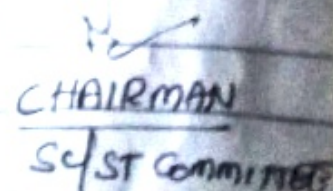 CHAIRMAN
SC/ST COMMITTEE